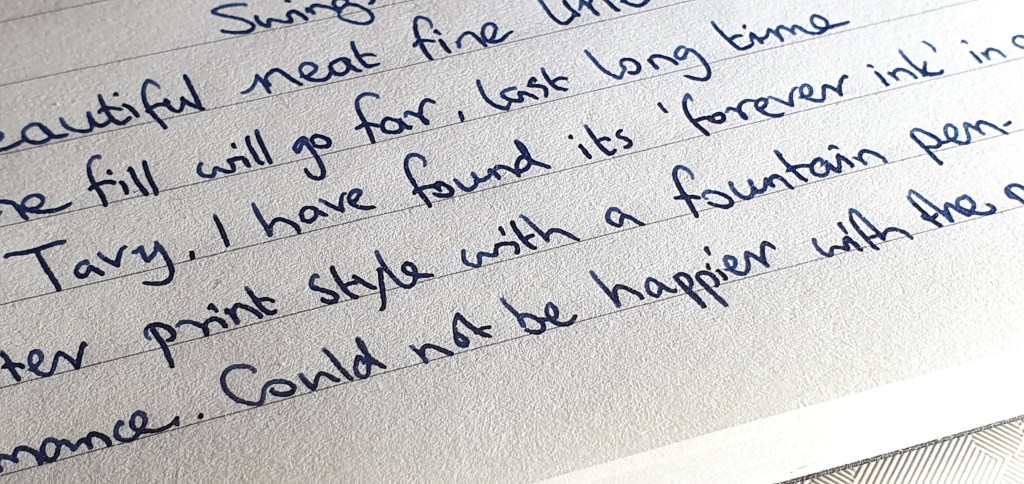 Swing
eautiful neat fine
ne fill will go far, last long time
Tavy, I have found its 'forever ink' in
ter print style with a fountain pen.
mance.. Could not be happier with the